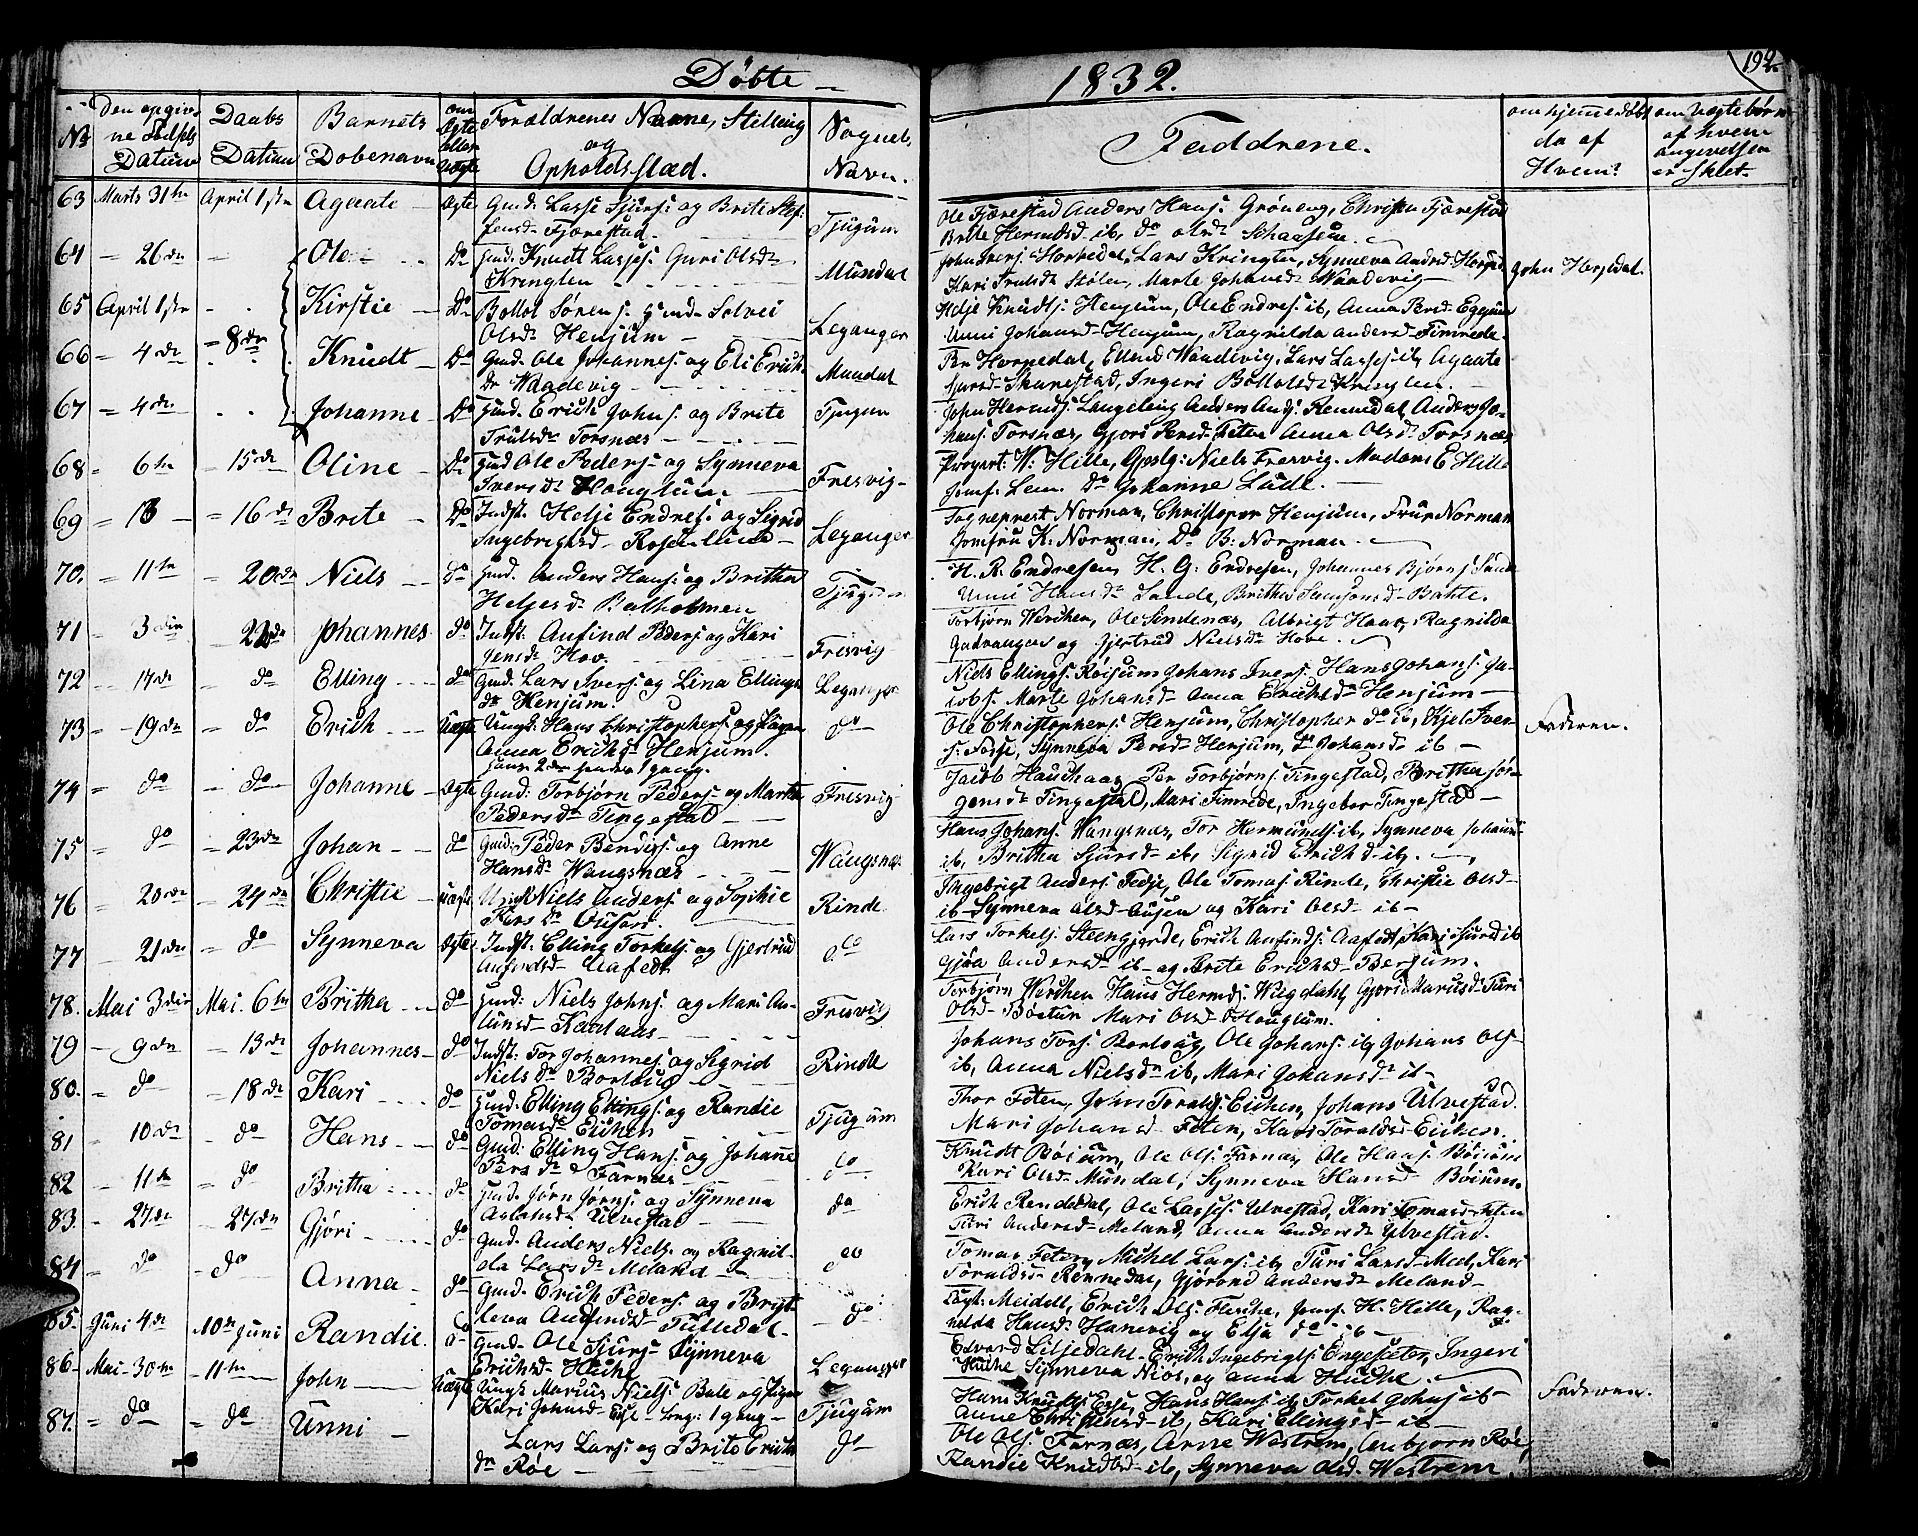 Döbte -
1832.
192
No
Den opgiv-
ne Födsels
Datum
Daabs
Datum
Barnets
Dobenavn
om
Ægte
eller
Uægte
Forældrenes Navne, Stilling
og
Opholdsstæd.
Sognets
Navn.
Faddrene.
om hjemmedöbt
da af
Hvem?
om Uægte börn
af hvem
angivelsen
er skeet
63 Marts 31te April 1ste Agaate Ægte Gmd: Lasse Sjurs: og Brite Stef- Tjugum
fensd. Fjærestad
Ole Fjærestad Anders Hans: Gröneng, Christen Fjærestad
Brite Hermdsd ib, do Olsd:
64 - 26de - Ole Do Gmd: Knudt Lasses: Guri Olsdr Mundal
Kringlen
John Ivers: Horpedal, Lars Kringlen, Synneva Andrsd Horpedal John Horpedal
Kari Trulsdr Stölen, Marte Johansdr Waadevig
65 April 1ste - Kirstie Do Bottol Sörens: Gmd: Solvei Leganger
Olsdr Henjum
Helje Knudts: Henjum, Ole Endres: ib, Anna Persd: Eggum
Unni Johansd Henjum, Ragnilda Andersd Fimrede
66 - 4de - 8de Knudt Do Gmd: Ole Johannes: og Eli Erich- Mundal
dr Waadevig
Per Horpedal, Ellend Waadevig, Lars Lasses: ib, Agaate
Sjursd Skarestad, Ingeri Böttolsdr Kringlen
67 - 4de Johanne Do Gmd: Erich Johns: og Brite Tjugum
Trulsdr Torsnæs
John Hermds: Langeteig Anders Ands: Rennedal, Anders Jo-
hans: Torsnæs, Gjöri Persd: Feten Anna Olsdr Torsnæs
68 - 6te - 15de Oline Do Gmd Ole Peders: og Synneva Fresvig
Iversdr Hauglum
W: Hille, Niels Fresvig, Madam E Hille
Jomf: Lem, do Johanne Lude
69 - 13 - 16de Brite Do Indst: Helje Endres: og Sigrid Leganger
Ingebrigtsd Rosenlund
Sogneprest Norman, Christopher Henjum, Frue Norman
Jomfru K. Norman, Do B: Norman
70. - 11te - 20de Niels do Gmd. Anders Hans: og Britha Tjugum
Heljesdr Balholmen
H. R. Endresen, H. G. Endresen, Johannes Björns: Sande
Unni Hansdr Lande, Britha Samsonsd Bahle.
71 - 3die 22de Johannes do Indst: Anfind Peders: og Kari Fresvig
Jensdr Hov
Torbjörn Werchen, Ole Sendenæs, Albrigt Haar, Ragnilda
Gudvangen og Gjertrud Nielsdr Hove
72 - 17de - do Elling do Gmd: Lars Ivers: og Lina Ellings- Leganger
dr Henjum.
Niels Ellings: Röisum Johans Ivers: Hans Johans: Ja-
cobs: Marte Johansd Anna Erichsdr Henjum
73 - 19de - do Erich Uægte Ungk: Hans Christophers: og Pigen do
Anna Erichsdr Henjum.
hans 2den hendes 1 gang.
Ole Christophers: Henjum, Christopher do ib, Kjel Iver- Faderen.
s: Fedje, Synneva Persdr Henjum, do Johansdr ib
74 - do - do Johanne Ægte Gmd: Torbjörn Peders: og Marta Fresvig
Pedersdr Tingestad
Jacob Hauchaas, Per Torbjörns: Tingestad, Britha Jör-
gensdr Tingestad, Mari Fimrede, Ingebor Tingestad
75 - do - 23de Johan do Gmd: Peder Bendixs: og Anne Wangsnæs
Hansdr Wangsnæs
Hans Johans: Wangsnæs, Tor Hermunds: ib, Synneva Johansd
ib, Britha Sjursd ib, Sigrid Erichd ib
76 - 20de - 24de Christie Uægte Ungk Niels Anders: og Sophie Rinde
Larsdr
Ingebrigt Anders: Fedje, Ole Tomas: Rinde, Christie Olsd-
ib Synneva Olsd Ousen og Kari Olsd ib
77 - 21de - do Synneva Ægte Indst: Elling Torkels: og Gjertrud do
Anfindsd Aafedt
Lars Torkels: Steengjerde, Erich Anfinds: Aafedt, Kari Sjursd ib
Gjöa Andersd ib og Brite Erichsd Berjum.
78. Mai 3die Mai. 6te Britha do Gmd: Niels Johns: og Mari An- Fresvig
lunsd
Torbjörn Werchen Hans Hermds: Wiigdahl, Gjöri Mariusd: Turi
Olsd Böetun Mari Olsd Hauglum.
79 - 9de - 13de Johannes do Indst: Tor Johannes: og Sigrid Rinde
Nielsdr Borlaug
Johans Tors: Borlaug, Ole Johans: ib, Johans Ols-
ib, Anna Nielsdr ib, Mari Johansdr ib
80. - do - 18de Kari do Gmd. Elling Ellings: og Randie Tjugum
Tomasdr Eichen
Thor Feten, John Toralds: Eichen, Johans Ulvestad.
Mari Johansd Feten, Kari Toraldsd Eichen.
81 - 10de - do Hans do Gmd: Elling Hans: og Johane do
Persdr Farnæs
Knudt Böium, Ole Ols: Farnæs, Ole Hans: Böium
Kari Olsd Mundal, Synneva Hansd Böium.
82 - 11te - do Britha do Gmd. Jörn Jörns: og Synneva do
Aslaksd Ulvestad
Erich Renededal, Ole Lasses: Ulvestad, Kari Tomasd Feten
Turi Andersd Meland, Anna Andersdr Ulvestad.
83. - 27de - 27de Gjöri do Gmd. Anders Niels: og Ragnil- do
da Larsdr Meland
Tomas Feten, Michel Lars: ib, Turi Larsd Mel, Kari
Toraldsd Rennedal, Gjörond Andersdr Meland
84 - do - do Anna do Gmd: Erich Peders: og Bryt- do
teva Anfindsd Tulledal
Capt: Meidell, Erich Ols: Flesche, Jomf: H. Hille, Rag-
nilda Hansd: Hanevig og Elsa do ib
85. Juni 4de 10de Juni Randie do Gmd. Ole Sjurs: Synneva Leganger
Erichsd Huche
Edvard Liljedahl Erich Ingebrigts: Engesæter, Ingeri
Huche Synneva Nios, og Anna Huche.
86 - Mai 30te - 11te John Uægte Ungk Marius Niels: Bale og Pigen Tjugum
Kari Johnsd Ese 1 gang
Hans Knudts: Ese, Hans Hans: ib Torkel Johns: ib Faderen.
Anne Christensd ib, Kari Ellingsd ib
87. - do - do Unni Lars Lars: og Brite Erich- do
dr Röe
Ole Ols: Farnæs, Arne Westrem, Anbjorn Röe,
Randie Knudtsd ib, Synneva Olsd. Westrem